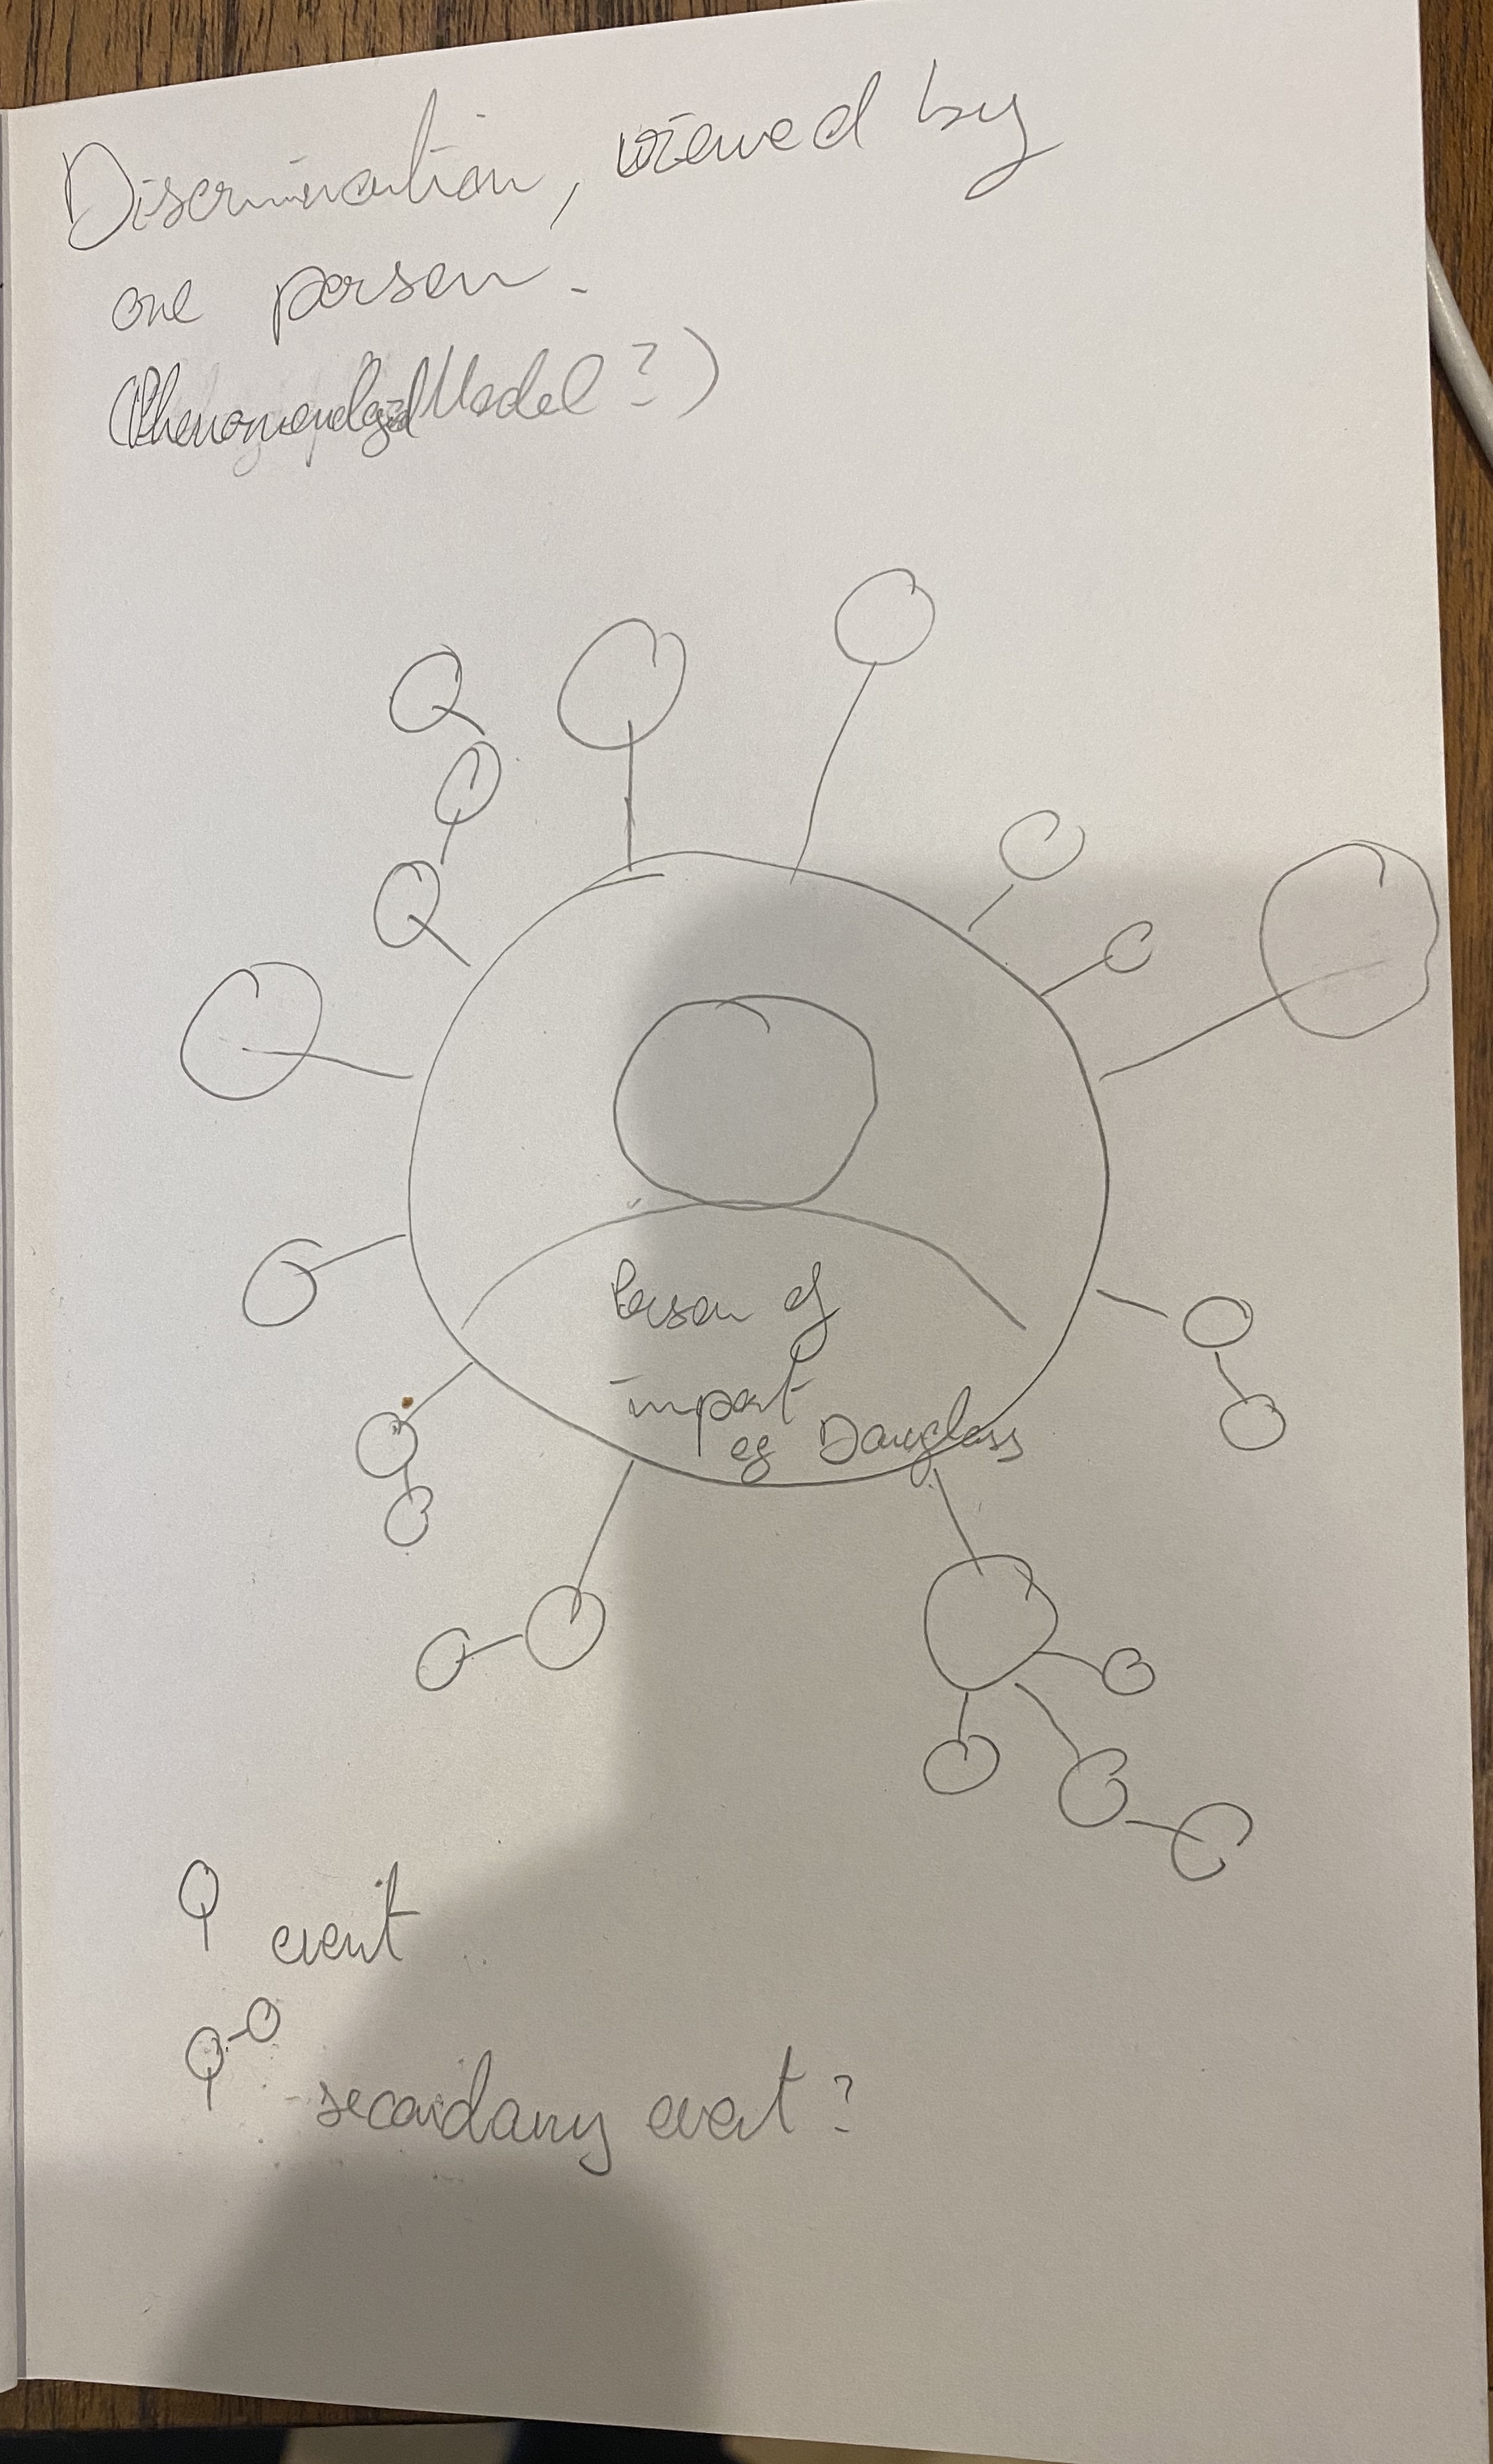 Discrimination, viewed by
one person.
Model?)
Person of
impact
eg Douglass
event
secondary event?